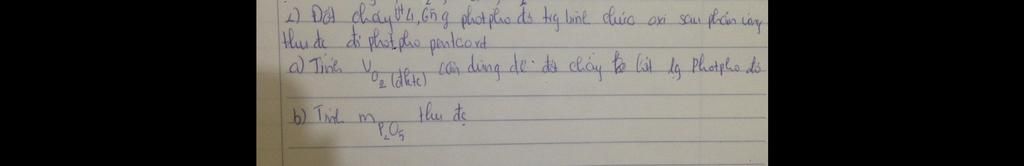 2) Đốt cháy g photpho đỏ trg bình chứa oxi sau phản ứng
thu đc đi photpho pentoxit
a) Tính V O2 (đktc) cần dùng để đốt cháy hết lg Photpho đỏ
b) Tính m P2O5 thu đc